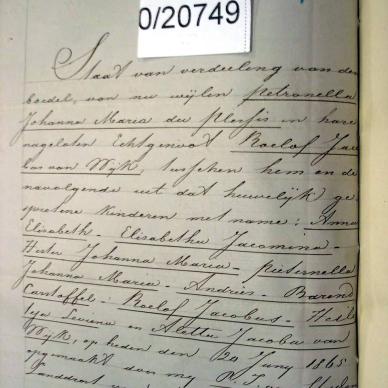 0/20749
Staat van verdeeling van den
boedel, van nu wijlen Petronella
Johanna Maria du Plessis in hare
nagelaten Echtgenoot Roelof Jaco
bus van Wijk, tusschen hem en de
navolgende uit dat huwelijk ge
sprotene Kinderen met name: Anna
Elisabeth - Elisabetha Jacomina -
Hester Johanna Maria - Pieternella
Johanna Maria - Andries - Barend
Carstoffel - Roelof Jacobus - Hest
Leviena en Aletta Jacoba van
Wijk, op heden den 20 Juny 1865
opgemaakt door my
Landdrost